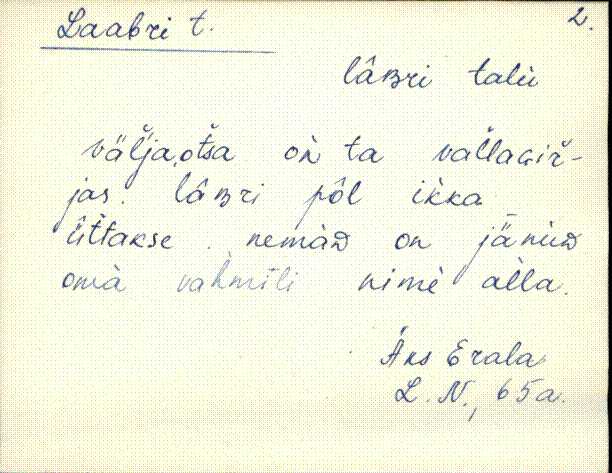 Laabri t. 2.
lâʙri talù
väĺjaˬot̆sa oǹ ta vallaɢiŕ-
jas. lâʙri pôl ikka
ǜttakse. nemäᴅ on jänùᴅ
omà vahmìli nimè alla.
Äks Erala
L. N., 65a.